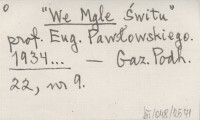 "We Mgle Świtu"
prof. Eug. Pawłowskiego.
1934... — Gaz. Podh.
22, nr 9.